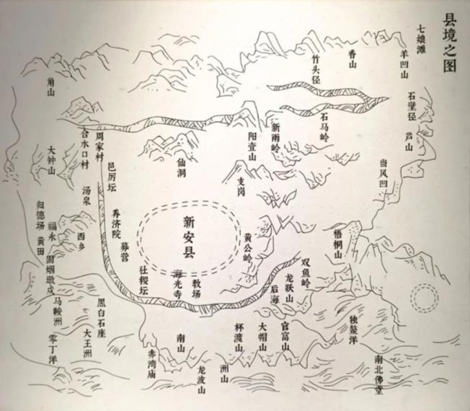 县境之图
七娘滩
羊凹山
香山
竹头径
石壁径
芦山
石马岭
新雨岭
角山
阳壹山
周家村
合水口村
大钟山
仙洞
当风凹
邑厉坛
支岗
汤泉
归德场
福永
黄田
西乡
养济院
新安县
黄公岭
梧桐山
墓营
双鱼岭
牧场
海光寺
社稷坛
龙跃山
后海
马鞍洲
黑白石座
独鳌洋
零丁洋
大王洲
官富山
大帽山
杯渡山
南山
赤湾庙
洲山
龙波山
南北佛堂